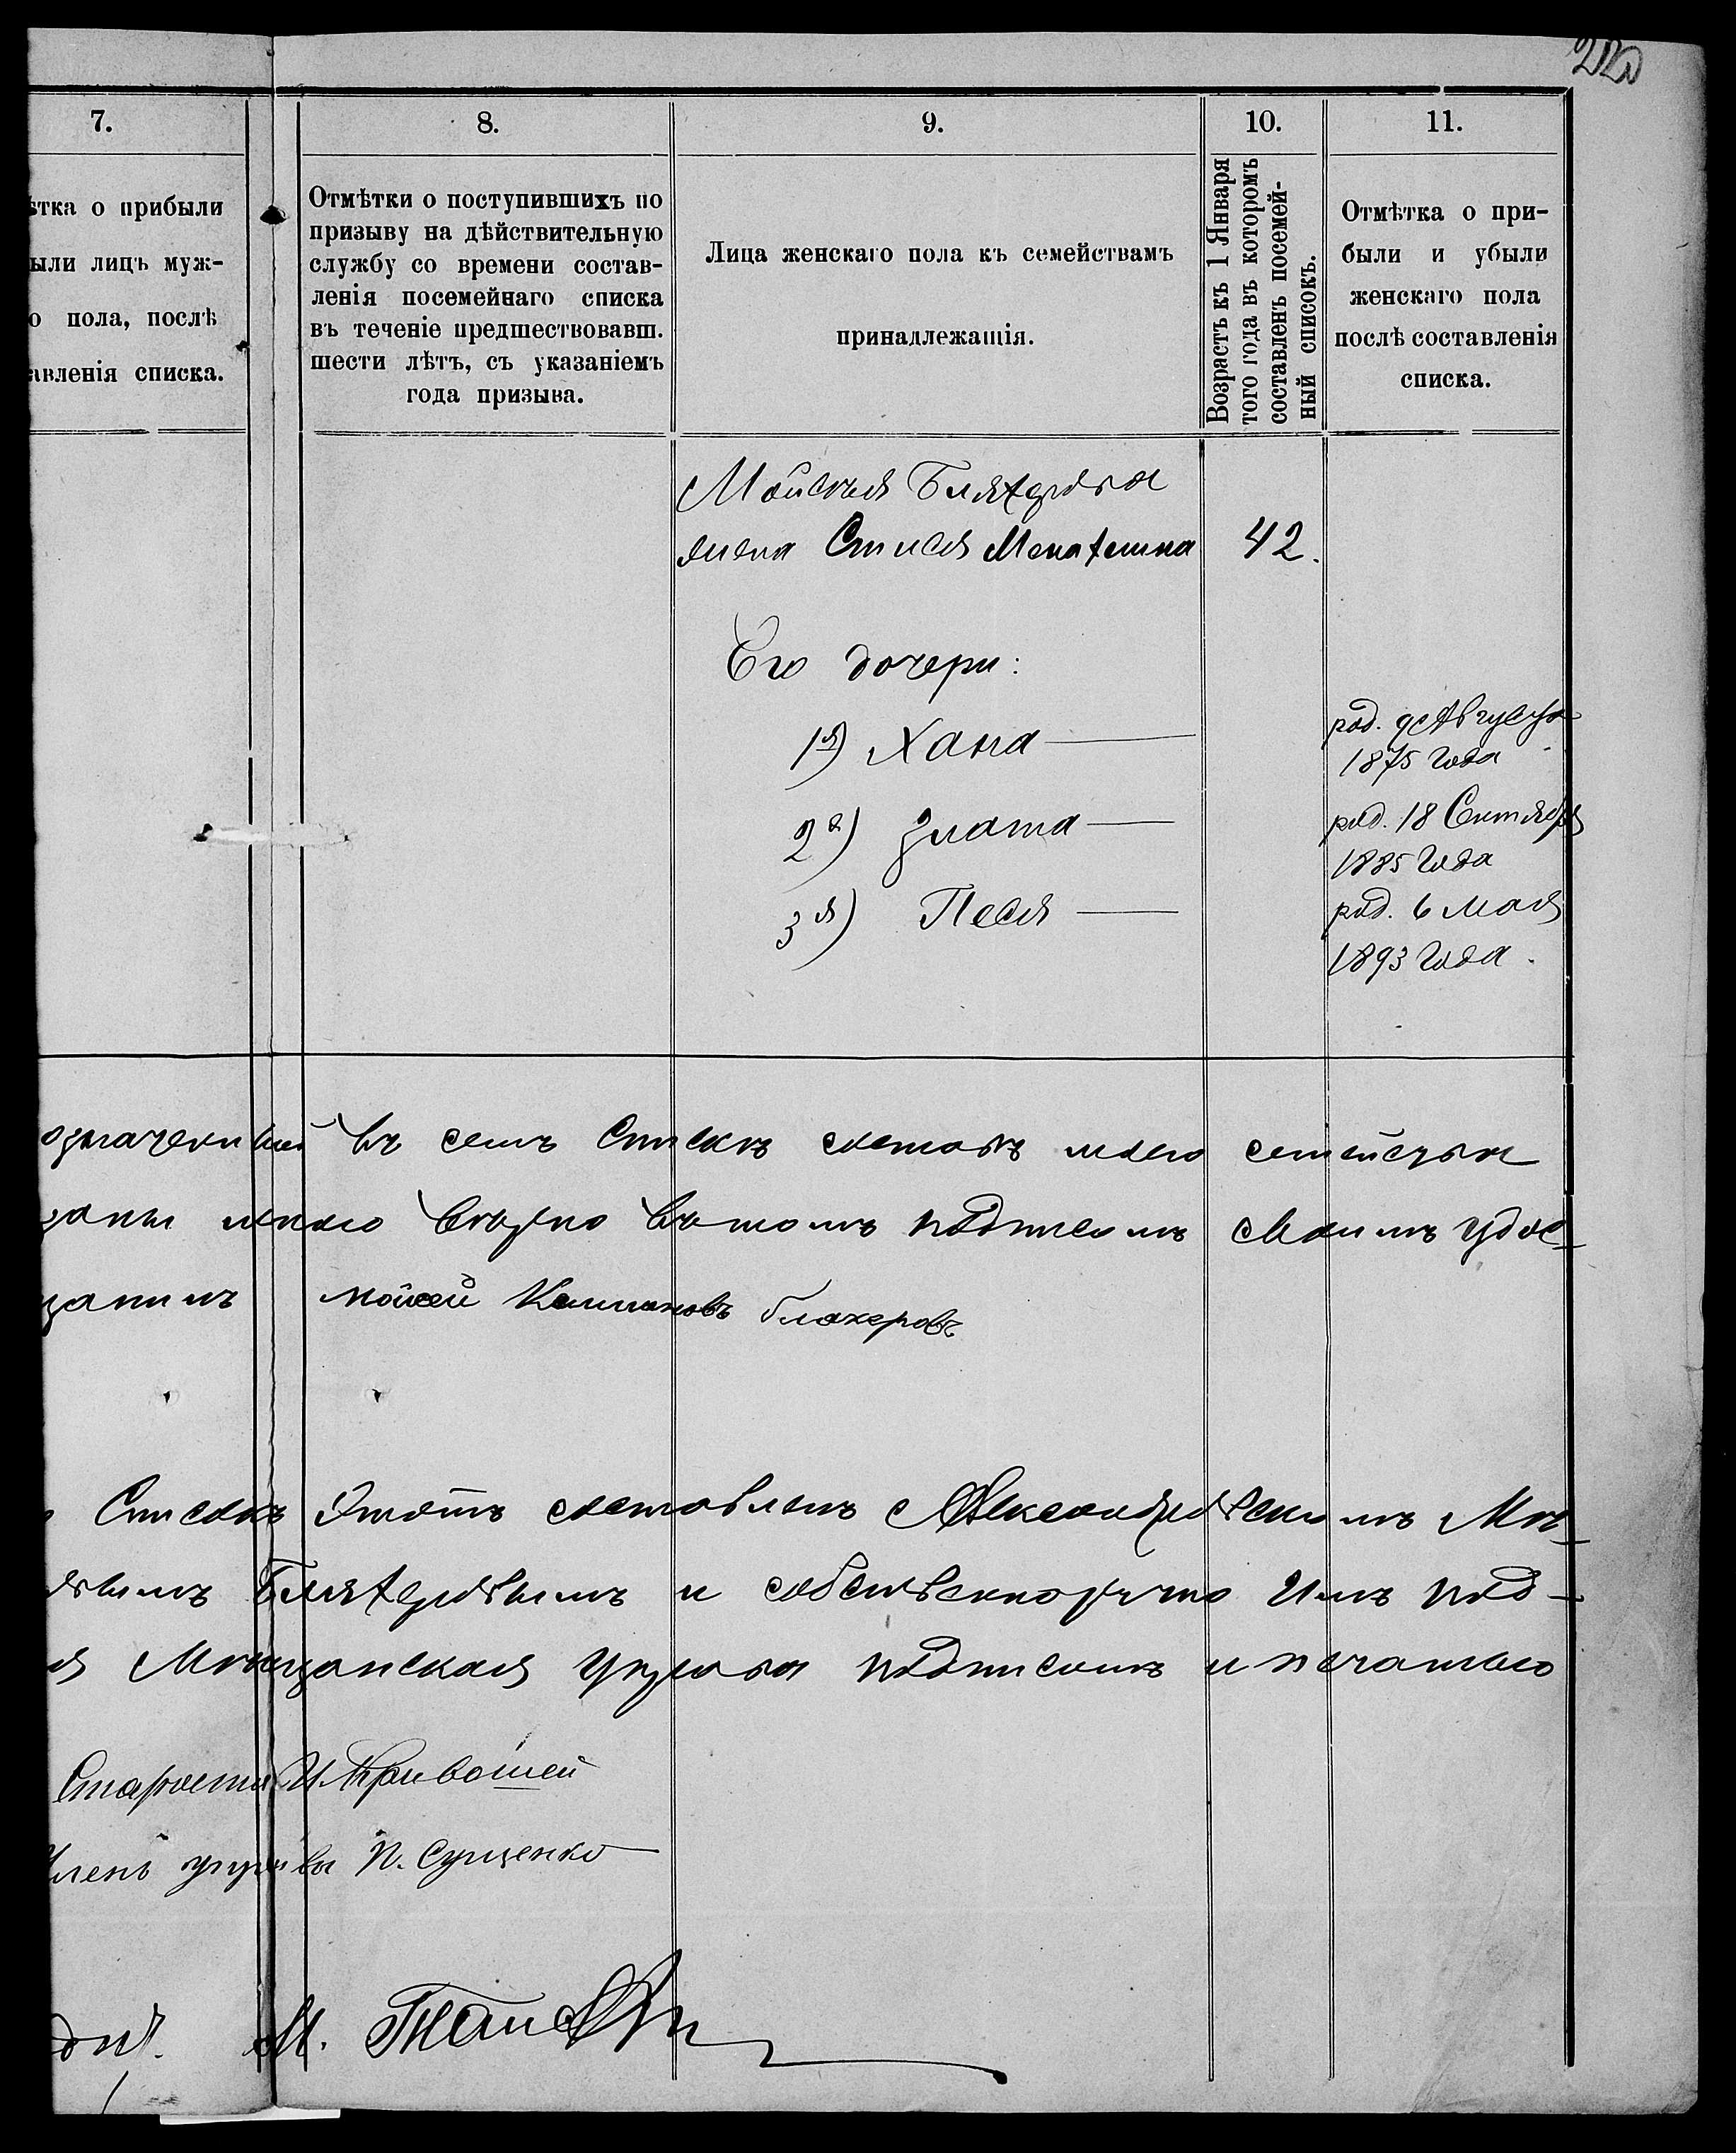 7.
8.
9.
10.
11.
ѣтка о прибыли
ыли лицъ муж-
о пола, послѣ
авленія списка.
Отмѣтки о поступившихъ по
призыву на дѣйствительную
службу со времени состав-
ленія посемейнаго списка
въ теченіе предшествовавш.
шести лѣтъ, съ указаніемъ
года призыва.
Лица женскаго пола къ семействамъ
принадлежащія.
Возрастъ къ 1 Января
того года въ которомъ
составленъ посемей-
ный списокъ.
Отмѣтка о при-
были и убыли
женскаго пола
послѣ составленія
списка.
Мойсѣя Бляхерова
жена Стися 42.
Его дочери:
1я) Хана — род. 9 Августа
1875 года
2я) Злата — род. 18 Сентября
1885 года
3я) Песя — род. 6 Мая
1893 года.
означенный въ семъ Спискѣ составъ моего семейства
заны мною вѣрно въ томъ подписомъ своимъ удос-
щанинъ Мойсей Калмановъ Бляхеровъ
Списокъ Этотъ составленъ Александровскимъ Мѣ-
овымъ Бляхеровымъ и собственноручно Имъ под-
я Мѣщанская Управа подписомъ и печатью
Староста И. Кривошей
Членъ управы П. Сущенко
М.